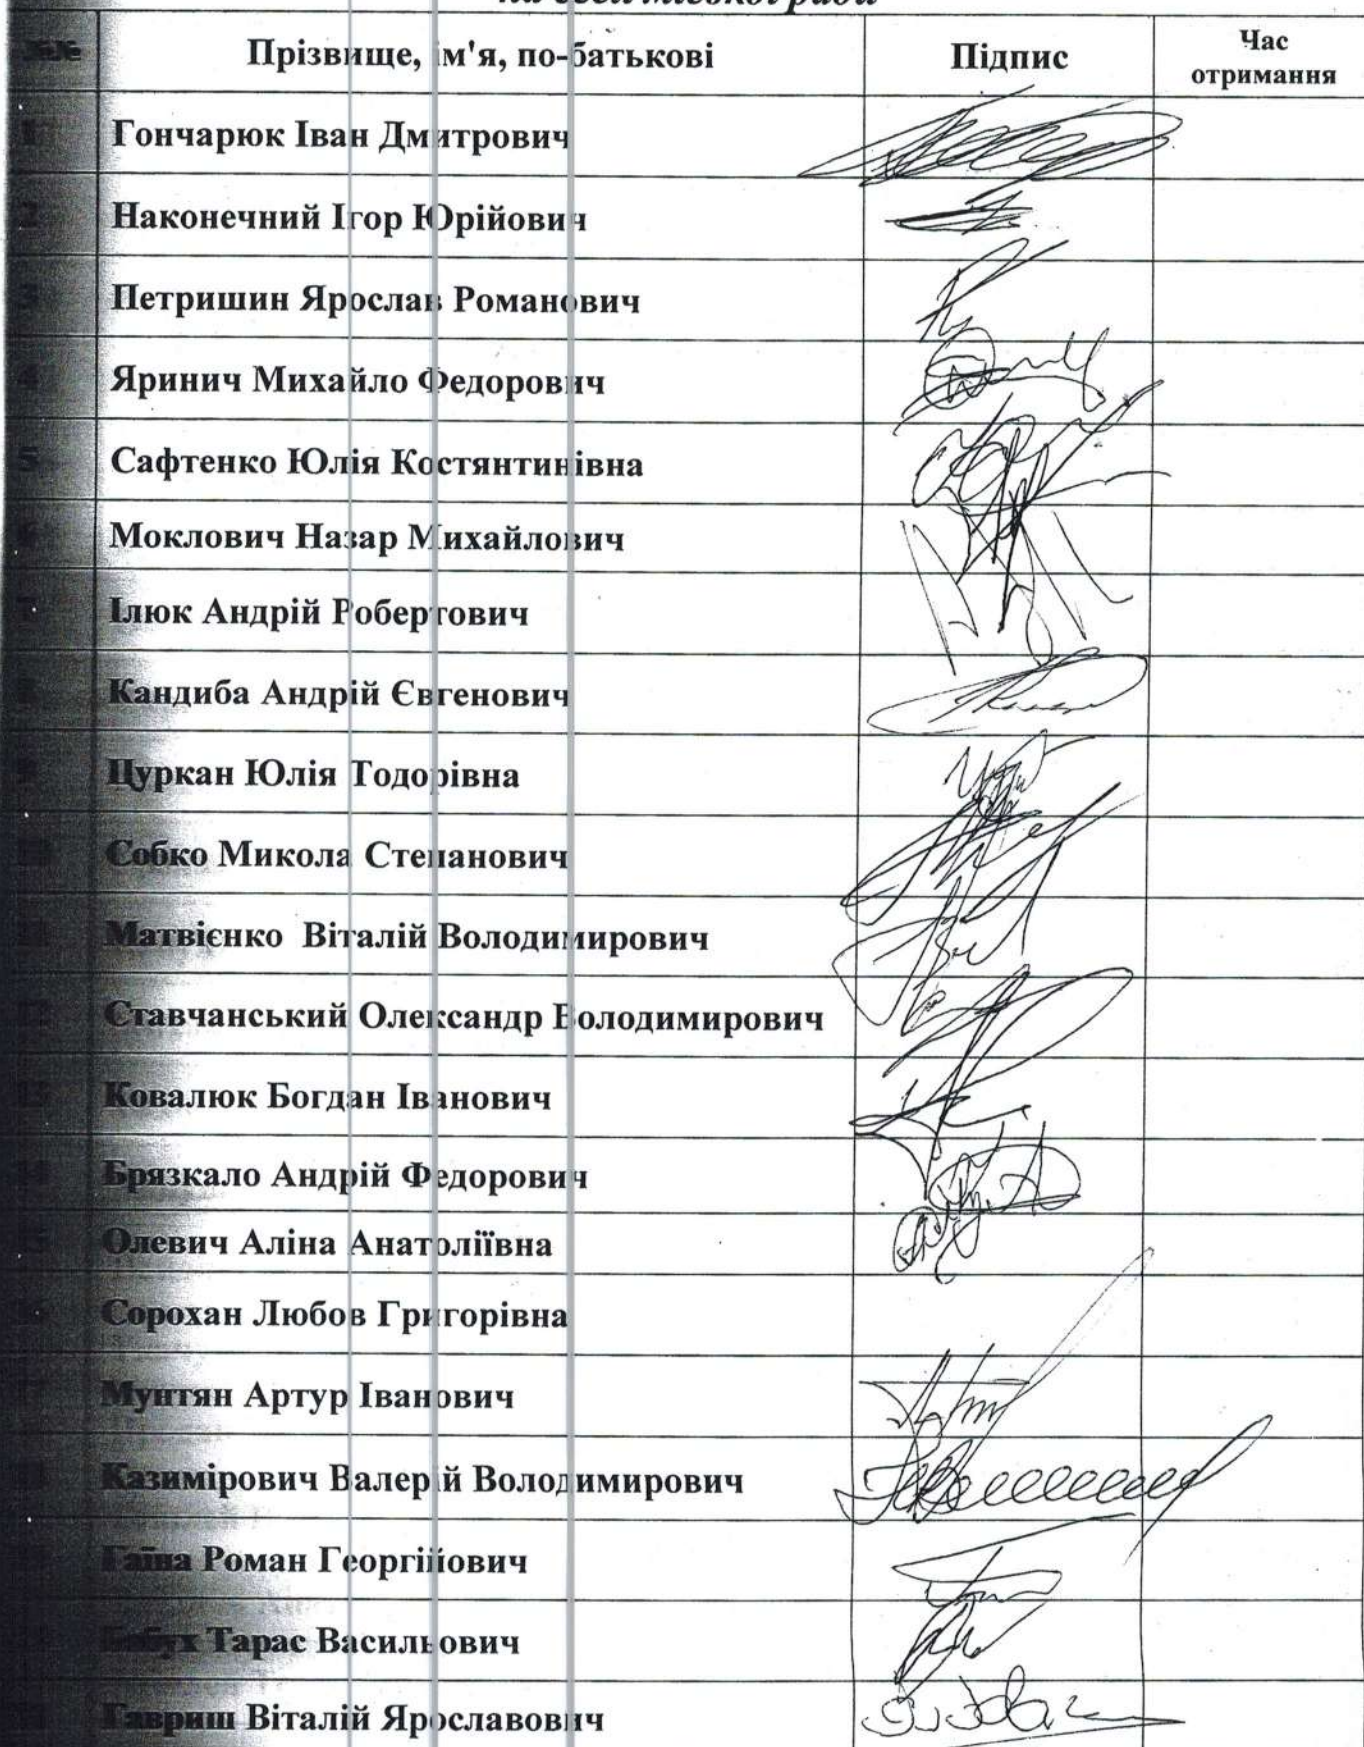 Прізвище, ім'я, по-батькові Підпис Час отримання
1 Гончарюк Іван Дмитрович
2 Наконечний Ігор Юрійович
3 Петришин Ярослав Романович
4 Яринич Михайло Федорович
5 Сафтенко Юлія Костянтинівна
6 Моклович Назар Михайлович
7 Ілюк Андрій Робертович
8 Кандиба Андрій Євгенович
9 Цуркан Юлія Тодорівна
10 Собко Микола Степанович
11 Матвієнко Віталій Володимирович
12 Ставчанський Олександр Володимирович
13 Ковалюк Богдан Іванович
14 Брязкало Андрій Федорович
15 Олевич Аліна Анатоліївна
16 Сорохан Любов Григорівна
17 Мунтян Артур Іванович
Казимірович Валерій Володимирович
Гаїна Роман Георгійович
Тарас Васильович
Гавриш Віталій Ярославович